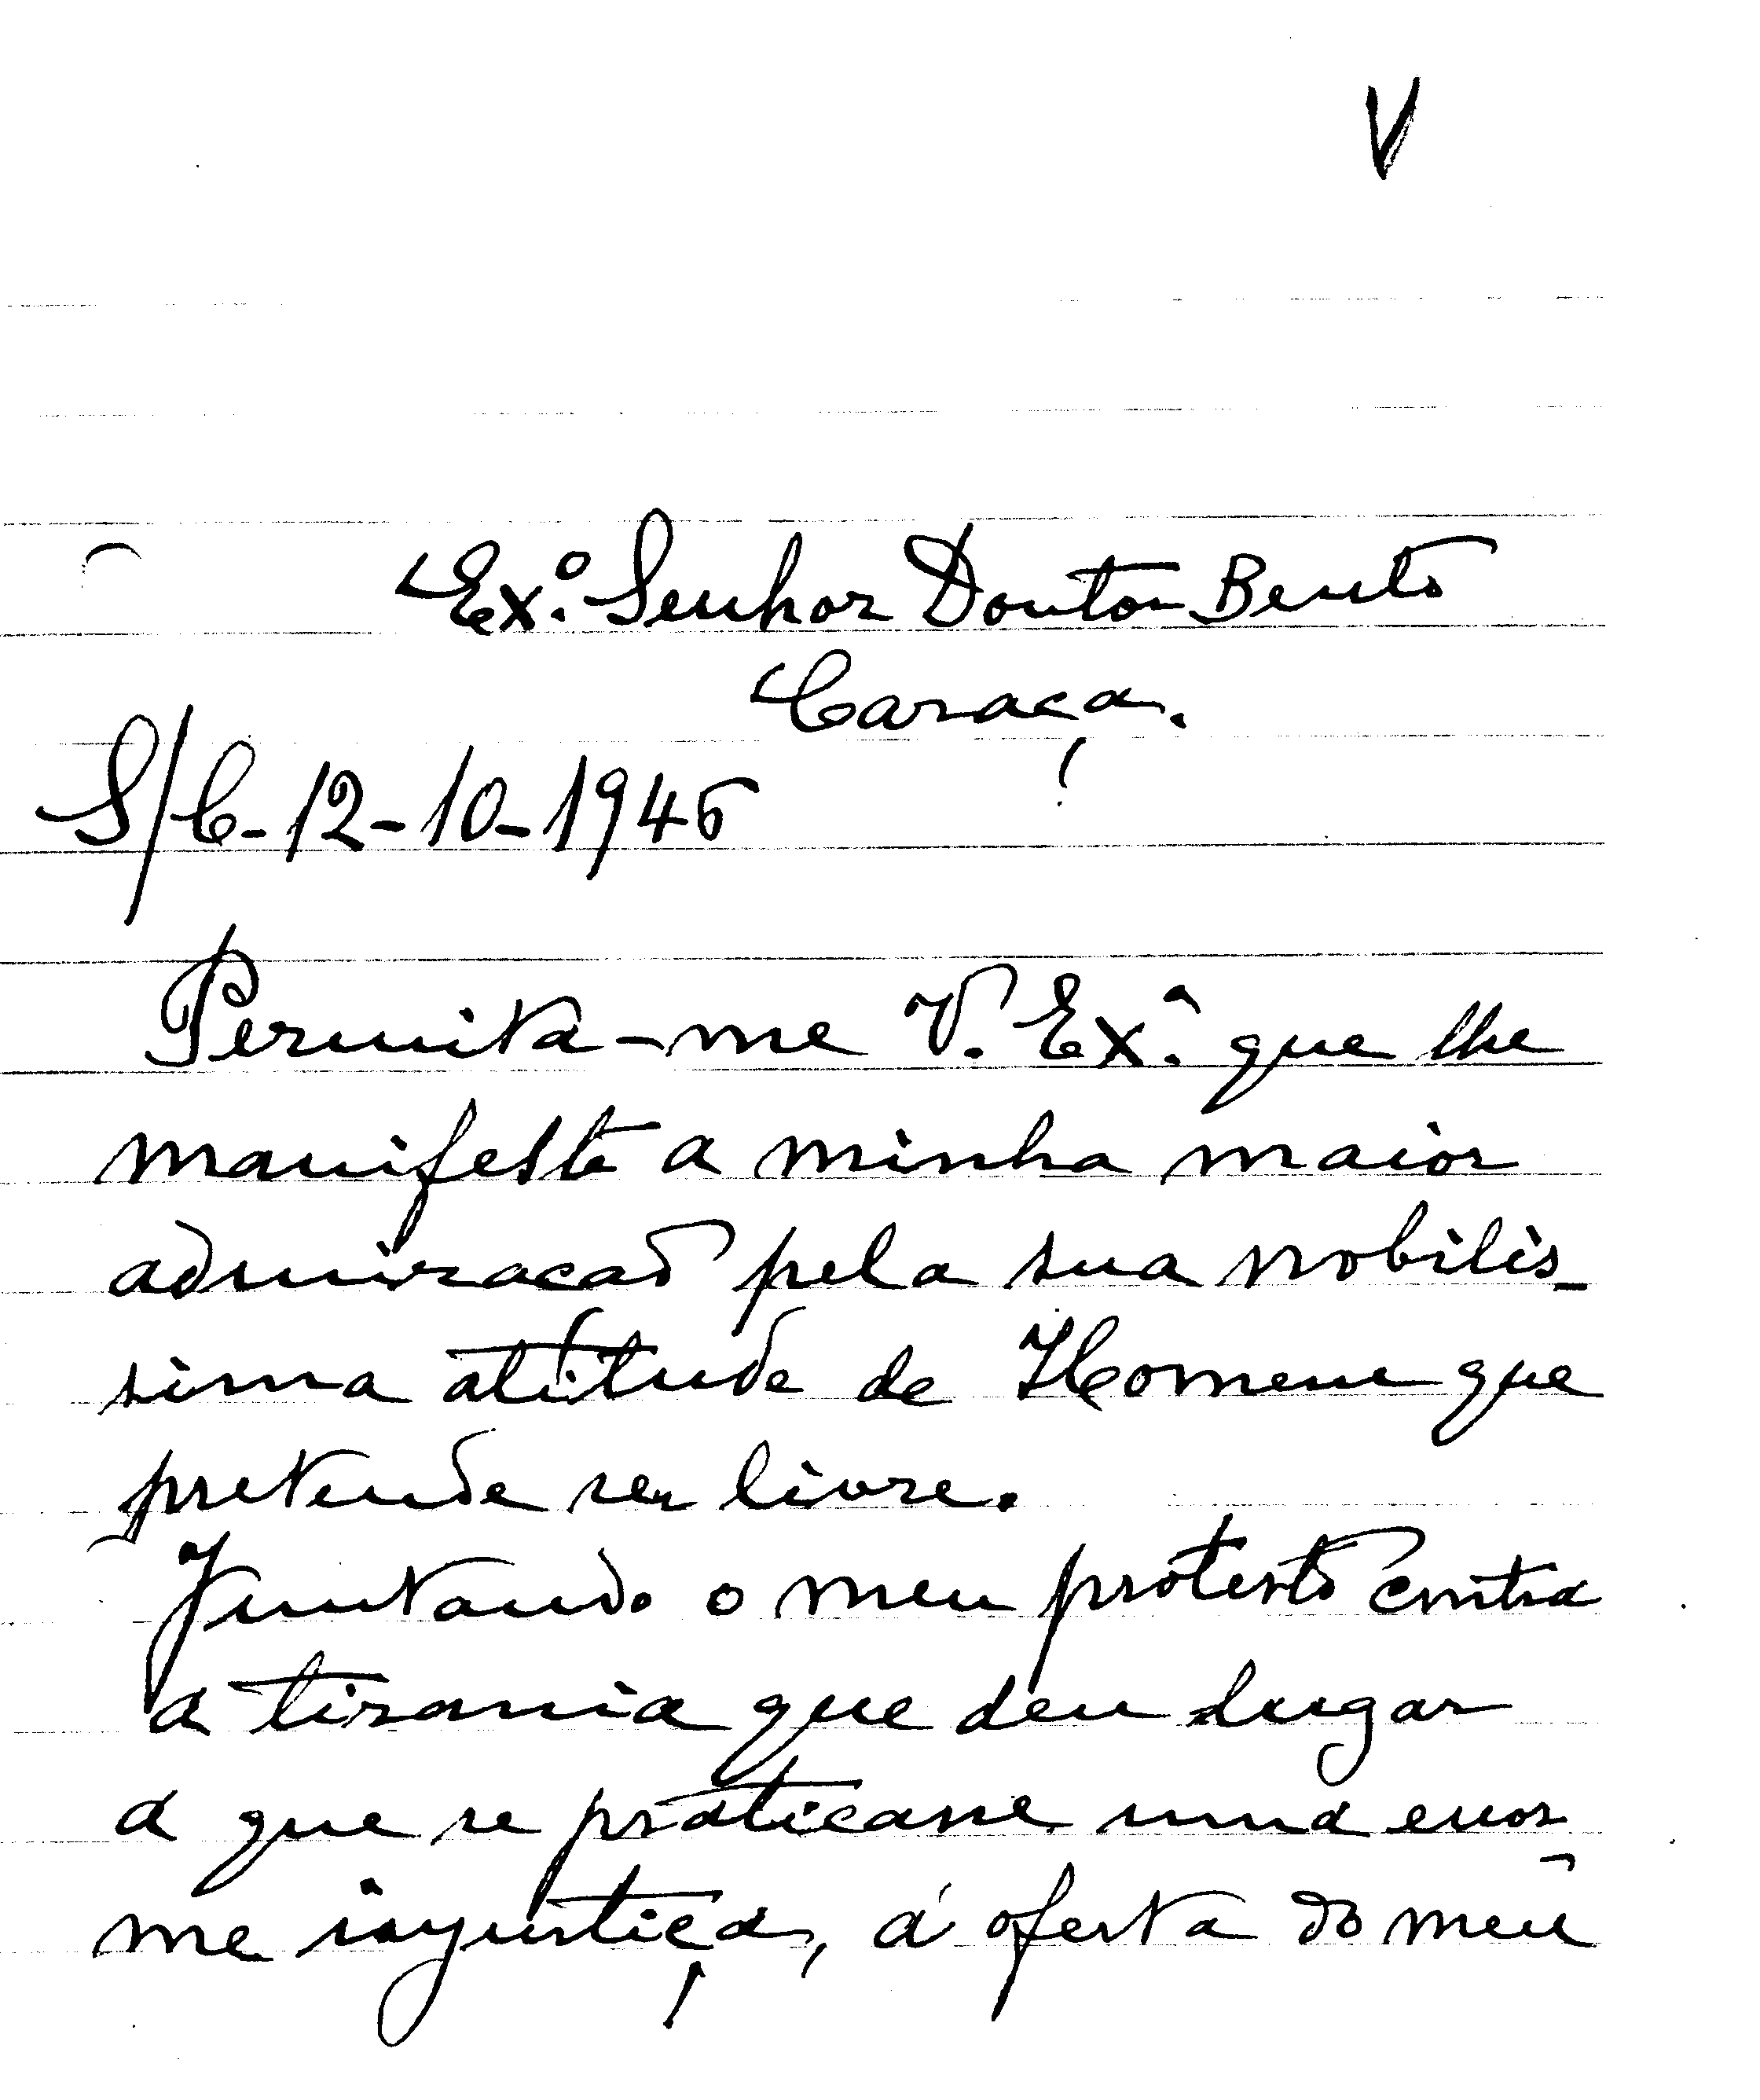 V
Ex.º Senhor Doutor Bento
Caraça.
S/C-12-10-1946
Permita-me V. Ex.ª que lhe
manifeste a minha maior
admiracaõ pela sua nobilis-
sima atitude de Homem que
pretende ser livre.
Juntando o meu protesto contra
a tirania que deu lugar
a que se praticasse uma enor
me injustiça, á oferta do meu